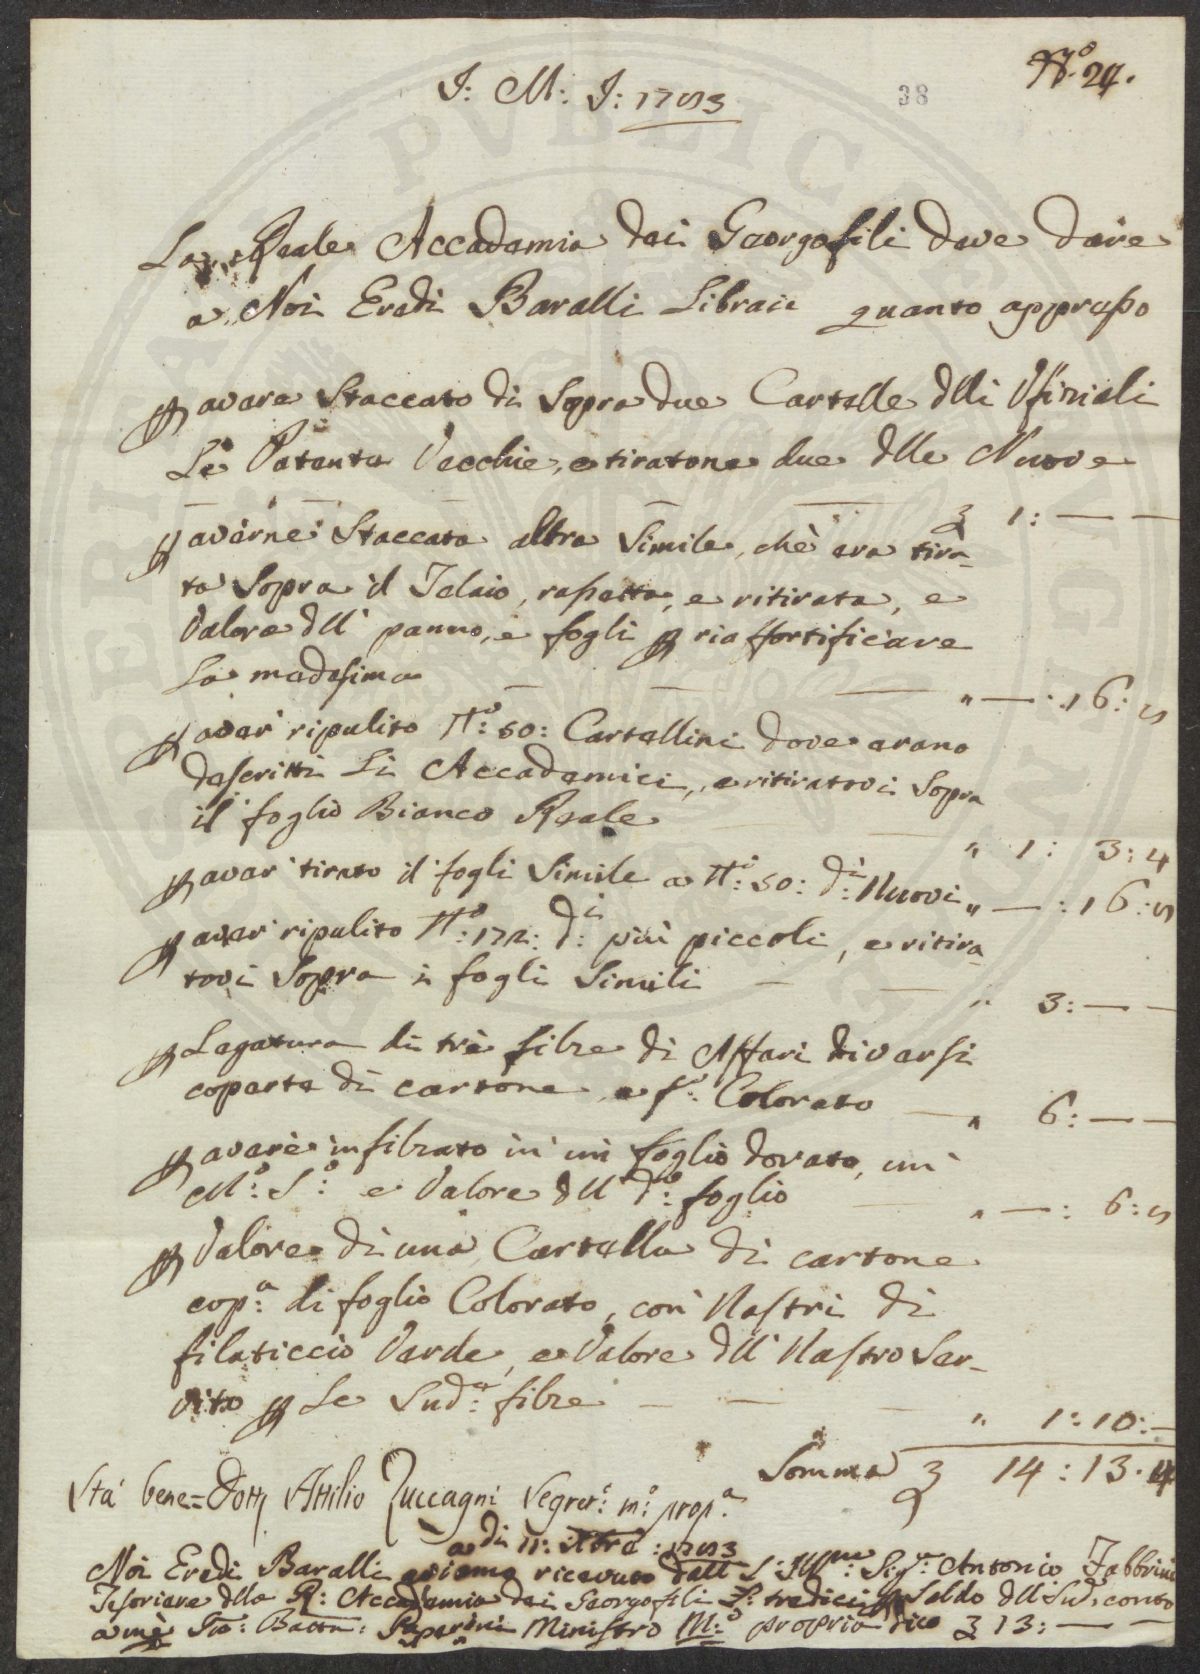 N.º 24.
J: M: J: 1793
38
La Reale Accademia dei Georgofili deve dare
a Noi Eredi Baralli Librai quanto appresso
p avere Staccato di Sopra due Cartelle dlli Ufiziali
Le Patente Vecchie, e tiratone due dlle Nuove
— — — — 3 1: — —
p averne Staccata altra Simile, che era tira-
ta Sopra il Telaio, rassetta, e ritirata, e
Valore dll' panno, e fogli p riaffortificare
La medesima — — — " — : 16: 8
p aver ripulito N:º 50: Cartellini dove erano
descritti Li Accademici, e ritiratovi Sopra
il foglio Bianco Reale — " 1: 3: 4
p aver tirato il fogli Simile a N:º 50: d:i Nuovi " — : 16: 8
p aver ripulito N:º 172: d:i più piccoli, e ritira-
tovi Sopra i fogli Simili — — " 3: — —
p Legatura di tre filze di Affari diversi
coperte di cartone, e f:º Colorato — " 6: — —
p avere infilzato in un foglio dorato, un
M:º S:º e Valore dll' d:º foglio — " — : 6: 8
p Valore di una Cartella di cartone
cop:a di foglio Colorato, con Nastri di
filaticcio Verde, e Valore dll' Nastro Ser-
vito p Le Sud:e filze — — — " 1: 10: —
Somma 3 14: 13. 4
Sta bene = Dott Attilio Zuccagni Segret: m:º prop:a
a di 11: Xbre: 1793
Noi Eredi Baralli aviamo ricevuto dall S: Ill:mo Sig:re Antonio Fabbrini
Tesoriere dlla R: Accademia dei Georgofili L: tredici p Saldo dll Sud: conto
a me Gio: Batta: Ministro M:º propria dico 3 13: — —